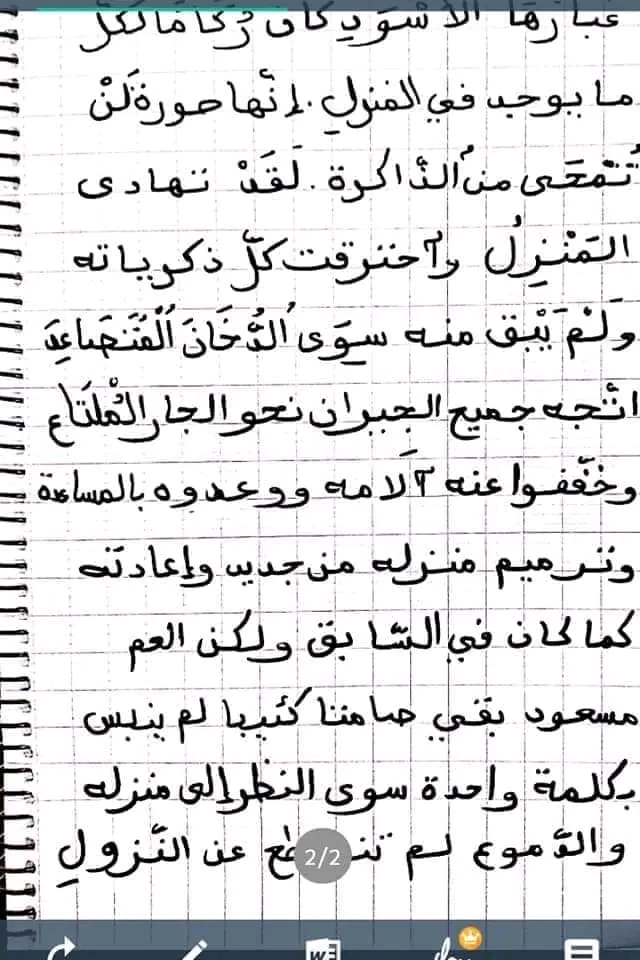 غبارها الأسود كان رُكَامًا لكلّ
ما يوجد في المنزلِ. إنّها صورة لَنْ
تُتْمَحَى من الذّاكرة. لَقَدْ تهادى
المَنْزِلُ واحترقت كلّ ذكرياته
وَلَمْ يَبْق منه سِوَى الدُّخَانَ الْمُتَصَاعِدَ
اتّجه جميع الجيران نحو الجار الْمُلْتَاع
وخفّفوا عنه آلامه ووعدوه بالمساعدة
وترميم منزله من جديد وإعادته
كما كان في السّابق ولكن العم
مسعود بقي صامتا كئيبا لم ينبس
بكلمة واحدة سوى النظر إلى منزله
والدّموع لم عن النّزولِ
2/2